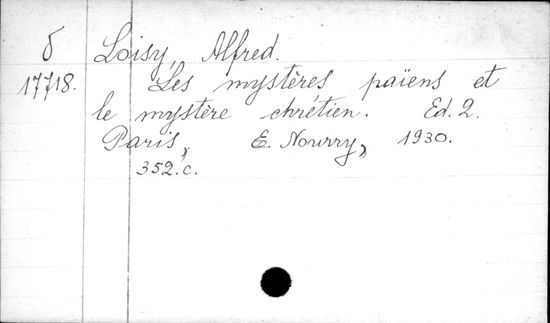 δ Loisy, Alfred.
17718. Les mystères païens et
le mystère chrétien. Ed. 2.
Paris, E. Nourry, 1930.
352.c.